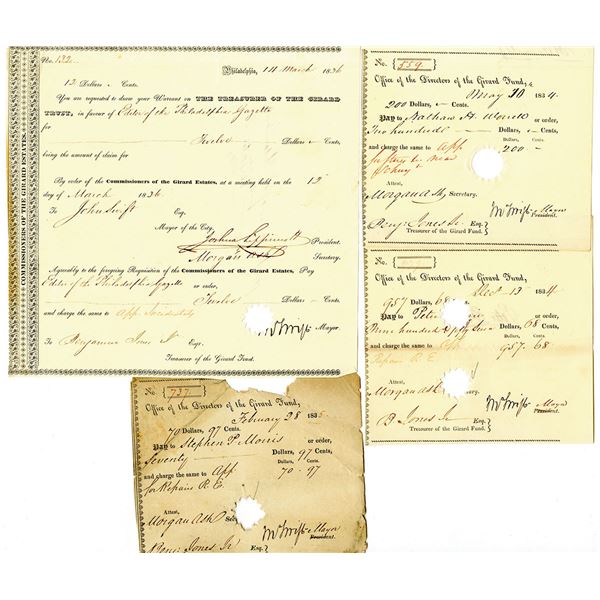 COMMISSIONERS OF THE GIRARD ESTATES.
No. 132
Philadelphia, 14 March 1836
12 Dollars Cents.
You are requested to draw your Warrant on THE TREASURER OF THE GIRARD
TRUST, in favour of Editor of the Philadelphia Gazette
Twelve Dollars Cents,
being the amount of claim for
By order of the Commissioners of the Girard Estates, at a meeting held on the 12
day of March 1836
To John Swift Esq.
Mayor of the City.
Joshua Lippincott President.
Morgan Ash Secretary.
Agreeably to the foregoing Requisition of the Commissioners of the Girard Estates, Pay
Editor of the Philadelphia Gazette or order,
Twelve Dollars Cents,
and charge the same to App
Jno Swift Mayor.
To Benjamin Jones Jr Esqr.
Treasurer of the Girard Fund.
No. 559
Office of the Directors of the Girard Fund,
May 10 1834
200 Dollars, Cents.
Pay to Nathan H. or order,
Two hundred Dollars, Cents,
Dollars, Cents.
and charge the same to App 200
Attest,
Morgan Ash, Secretary.
Jno Swift Mayor
President.
Benj. Jones Jr. Esq.
Treasurer of the Girard Fund.
No.
Office of the Directors of the Girard Fund,
Dec 13 1834
957 Dollars, 68 Cents.
Pay to Peter or order,
Nine hundred & fifty Seven Dollars, 68 Cents,
Dollars, Cents.
and charge the same to App 957.68
Repairs R. E.
Attest,
Morgan Ash Secretary.
Jno Swift Mayor
President.
B Jones Jr Esq.
Treasurer of the Girard Fund.
No. 737
Office of the Directors of the Girard Fund,
February 28 1835
70 Dollars, 97 Cents.
Pay to Stephen P. Morris or order,
Seventy Dollars, 97 Cents,
Dollars, Cents.
and charge the same to App 70.97
for Repairs R. E.
Attest,
Morgan Ash Sec
Jno Swift Mayor
President.
Benj. Jones Jr Esq.